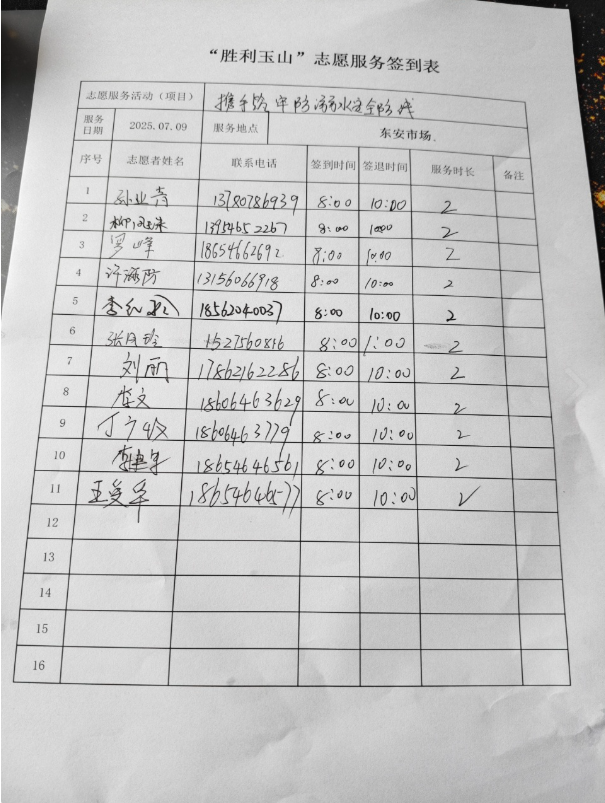 “胜利玉山”志愿服务签到表
志愿服务活动（项目） 携手筑牢防溺水安全防线
服务日期 2025.07.09 服务地点 东安市场.
序号 志愿者姓名 联系电话 签到时间 签退时间 服务时长 备注
1 孙业青 13780786939 8:00 10:00 2
2 柳 1395465 2267 8:00 10:00 2
3 罗峰 18654662692 8:00 10:00 2
4 许海防 13156066918 8:00 10:00 2
5 李红 18562040037 8:00 10:00 2
6 张月玲 1527560816 8:00 1:00 2
7 刘丽 17862162286 8:00 10:00 2
8 李文 18606463629 8:00 10:00 2
9 丁 18606463779 8:00 10:00 2
10 李建宇 18654646561 8:00 10:00 2
11 王复军 18654646577 8:00 10:00 2
12
13
14
15
16